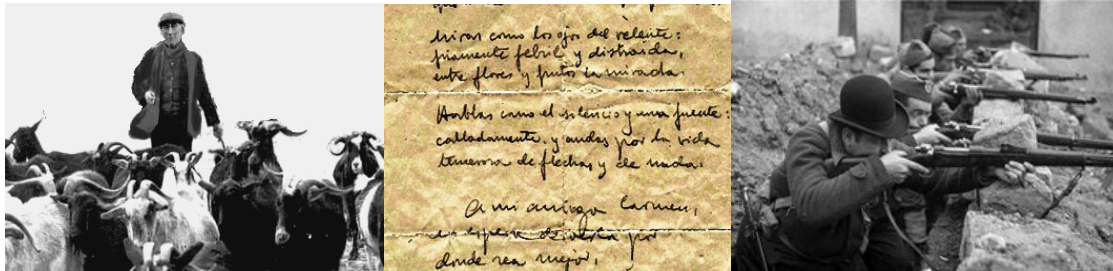 miras como los ojos del relente:
puramente febril y distraída,
entre flores y frutos la mirada.
Hablas como el silencio y una fuente:
calladamente, y andas por la vida
temerosa de flechas y de nada.
A mi amiga Carmen,
en espera de verla por
donde sea mejor,